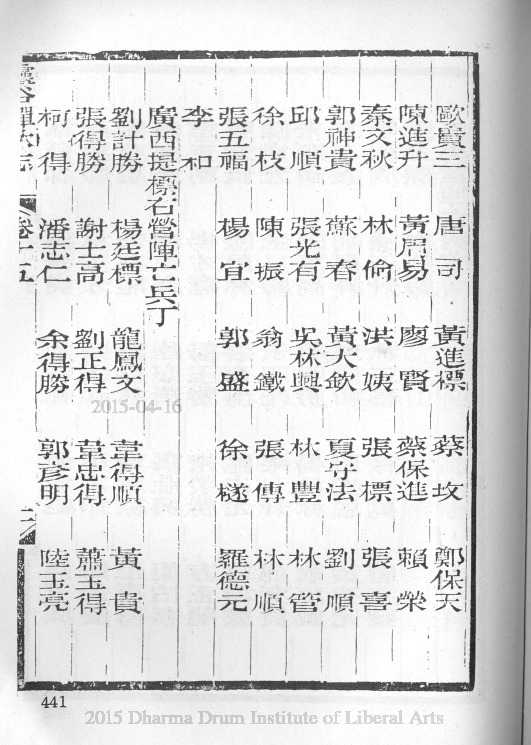 歐貴三 唐司 黃進標 蔡坆 鄭保天
陳進升 黃眉易 廖賢 蔡保進 賴榮
秦文秋 林偷 洪姨 張標 張喜
郭神貴 蘇春 黃大欽 夏守法 劉順
邱順 張光有 吳林興 林豐 林管
徐枝 陳振 翁鐵 張傳 林順
張五福 楊宜 郭盛 徐檖 羅德元
李和
廣西提標右營陣亡兵丁
劉計勝 楊廷標 龍鳳文 韋得順 黃貴
張得勝 謝士高 劉正得 韋忠得 蕭玉得
柯得 潘志仁 余得勝 郭彥明 陸玉亮
靈谷禪林志 卷十五 二
2015-04-16
441
2015 Dharma Drum Institute of Liberal Arts